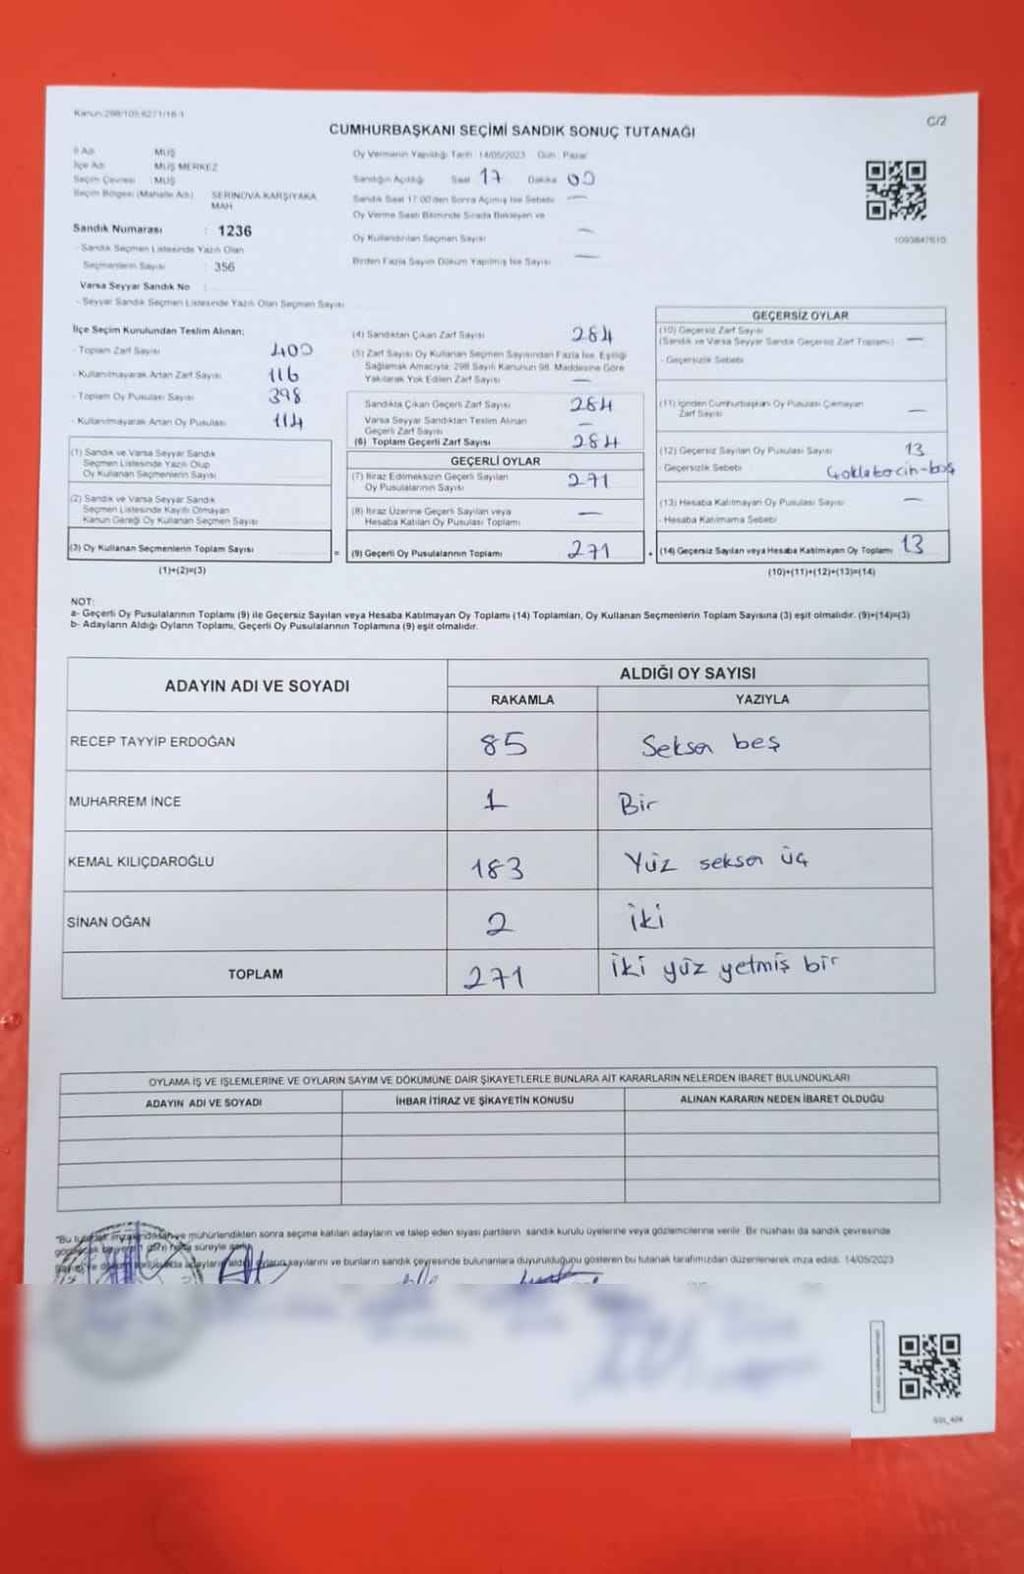 CUMHURBAŞKANI SEÇİMİ SANDIK SONUÇ TUTANAĞI
C/2
İl Adı : MUŞ
İlçe Adı : MUŞ MERKEZ
Seçim Çevresi : MUŞ
Seçim Bölgesi (Mahalle Adı) : SERİNOVA KARŞIYAKA MAH
Sandık Numarası : 1236
- Sandık Seçmen Listesinde Yazılı Olan
Seçmenlerin Sayısı : 356
Varsa Seyyar Sandık No :
- Seyyar Sandık Seçmen Listesinde Yazılı Olan Seçmen Sayısı
Oy Vermenin Yapıldığı Tarih : 14/05/2023 Gün : Pazar
Sandığın Açıldığı Saat 17 Dakika 00
Sandık Saat 17:00'den Sonra Açılmış İse Sebebi —
Oy Verme Saati Bitiminde Sırada Bekleyen ve
Oy Kullandırılan Seçmen Sayısı —
Birden Fazla Sayım Döküm Yapılmış İse Sayısı —
1093847610
İlçe Seçim Kurulundan Teslim Alınan:
- Toplam Zarf Sayısı 400
- Kullanılmayarak Artan Zarf Sayısı 116
- Toplam Oy Pusulası Sayısı 398
- Kullanılmayarak Artan Oy Pusulası 114
(1) Sandık ve Varsa Seyyar Sandık
Seçmen Listesinde Yazılı Olup
Oy Kullanan Seçmenlerin Sayısı
(2) Sandık ve Varsa Seyyar Sandık
Seçmen Listesinde Kayıtlı Olmayan
Kanun Gereği Oy Kullanan Seçmen Sayısı
(3) Oy Kullanan Seçmenlerin Toplam Sayısı
(1)+(2)=(3)
(4) Sandıktan Çıkan Zarf Sayısı 284
(5) Zarf Sayısı Oy Kullanan Seçmen Sayısından Fazla İse, Eşitliği
Sağlamak Amacıyla; 298 Sayılı Kanunun 98. Maddesine Göre
Yakılarak Yok Edilen Zarf Sayısı —
Sandıkta Çıkan Geçerli Zarf Sayısı 284
Varsa Seyyar Sandıktan Teslim Alınan
Geçerli Zarf Sayısı —
(6) Toplam Geçerli Zarf Sayısı 284
GEÇERLİ OYLAR
(7) İtiraz Edilmeksizin Geçerli Sayılan
Oy Pusulalarının Sayısı 271
(8) İtiraz Üzerine Geçerli Sayılan veya
Hesaba Katılan Oy Pusulası Toplamı —
= (9) Geçerli Oy Pusulalarının Toplamı 271
GEÇERSİZ OYLAR
(10) Geçersiz Zarf Sayısı
(Sandık ve Varsa Seyyar Sandık Geçersiz Zarf Toplamı) —
- Geçersizlik Sebebi
(11) İçinden Cumhurbaşkanı Oy Pusulası Çıkmayan
Zarf Sayısı —
(12) Geçersiz Sayılan Oy Pusulası Sayısı 13
- Geçersizlik Sebebi
(13) Hesaba Katılmayan Oy Pusulası Sayısı —
- Hesaba Katılmama Sebebi
(14) Geçersiz Sayılan veya Hesaba Katılmayan Oy Toplamı 13
(10)+(11)+(12)+(13)=(14)
NOT:
a- Geçerli Oy Pusulalarının Toplamı (9) ile Geçersiz Sayılan veya Hesaba Katılmayan Oy Toplamı (14) Toplamları, Oy Kullanan Seçmenlerin Toplam Sayısına (3) eşit olmalıdır. (9)+(14)=(3)
b- Adayların Aldığı Oyların Toplamı, Geçerli Oy Pusulalarının Toplamına (9) eşit olmalıdır.
ADAYIN ADI VE SOYADI
ALDIĞI OY SAYISI
RAKAMLA YAZIYLA
RECEP TAYYİP ERDOĞAN 85 Seksen beş
MUHARREM İNCE 1 Bir
KEMAL KILIÇDAROĞLU 183 Yüz seksen üç
SİNAN OĞAN 2 iki
TOPLAM 271 iki yüz yetmiş bir
OYLAMA İŞ VE İŞLEMLERİNE VE OYLARIN SAYIM VE DÖKÜMÜNE DAİR ŞİKAYETLERLE BUNLARA AİT KARARLARIN NELERDEN İBARET BULUNDUKLARI
ADAYIN ADI VE SOYADI İHBAR İTİRAZ VE ŞİKAYETİN KONUSU ALINAN KARARIN NEDEN İBARET OLDUĞU
mühürlendikten sonra seçime katılan adayların ve talep eden siyasi partilerin sandık kurulu üyelerine veya gözlemcilerine verilir. Bir nüshası da sandık çevresinde
sayılarını ve bunların sandık çevresinde bulunanlara duyurulduğunu gösteren bu tutanak tarafımızdan düzenlenerek imza edildi. 14/05/2023